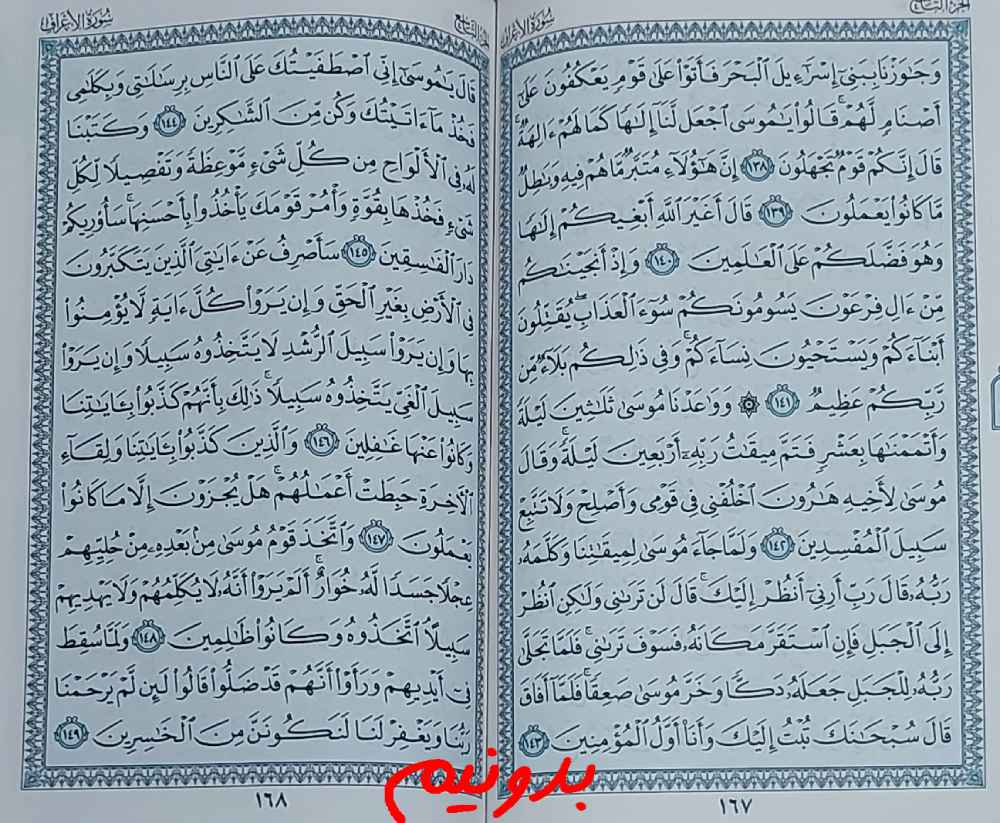 الجزء التاسع
سورة الأعراف
وَجَٰوَزْنَا بِبَنِىٓ إِسْرَٰٓءِيلَ ٱلْبَحْرَ فَأَتَوْا۟ عَلَىٰ قَوْمٍ يَعْكُفُونَ عَلَىٰٓ
أَصْنَامٍ لَّهُمْ ۚ قَالُوا۟ يَٰمُوسَى ٱجْعَل لَّنَآ إِلَٰهًا كَمَا لَهُمْ ءَالِهَةٌ ۚ
قَالَ إِنَّكُمْ قَوْمٌ تَجْهَلُونَ ١٣٨ إِنَّ هَٰٓؤُلَآءِ مُتَبَّرٌ مَّا هُمْ فِيهِ وَبَٰطِلٌ
مَّا كَانُوا۟ يَعْمَلُونَ ١٣٩ قَالَ أَغَيْرَ ٱللَّهِ أَبْغِيكُمْ إِلَٰهًا
وَهُوَ فَضَّلَكُمْ عَلَى ٱلْعَٰلَمِينَ ١٤٠ وَإِذْ أَنجَيْنَٰكُم
مِّنْ ءَالِ فِرْعَوْنَ يَسُومُونَكُمْ سُوٓءَ ٱلْعَذَابِ ۖ يُقَتِّلُونَ
أَبْنَآءَكُمْ وَيَسْتَحْيُونَ نِسَآءَكُمْ ۚ وَفِى ذَٰلِكُم بَلَآءٌ مِّن
رَّبِّكُمْ عَظِيمٌ ١٤١ ۞ وَوَٰعَدْنَا مُوسَىٰ ثَلَٰثِينَ لَيْلَةً
وَأَتْمَمْنَٰهَا بِعَشْرٍ فَتَمَّ مِيقَٰتُ رَبِّهِۦٓ أَرْبَعِينَ لَيْلَةً ۚ وَقَالَ
مُوسَىٰ لِأَخِيهِ هَٰرُونَ ٱخْلُفْنِى فِى قَوْمِى وَأَصْلِحْ وَلَا تَتَّبِعْ
سَبِيلَ ٱلْمُفْسِدِينَ ١٤٢ وَلَمَّا جَآءَ مُوسَىٰ لِمِيقَٰتِنَا وَكَلَّمَهُۥ
رَبُّهُۥ قَالَ رَبِّ أَرِنِىٓ أَنظُرْ إِلَيْكَ ۚ قَالَ لَن تَرَىٰنِى وَلَٰكِنِ ٱنظُرْ
إِلَى ٱلْجَبَلِ فَإِنِ ٱسْتَقَرَّ مَكَانَهُۥ فَسَوْفَ تَرَىٰنِى ۚ فَلَمَّا تَجَلَّىٰ
رَبُّهُۥ لِلْجَبَلِ جَعَلَهُۥ دَكًّا وَخَرَّ مُوسَىٰ صَعِقًا ۚ فَلَمَّآ أَفَاقَ
قَالَ سُبْحَٰنَكَ تُبْتُ إِلَيْكَ وَأَنَا۠ أَوَّلُ ٱلْمُؤْمِنِينَ ١٤٣
١٦٧
الجزء التاسع
سورة الأعراف
قَالَ يَٰمُوسَىٰٓ إِنِّى ٱصْطَفَيْتُكَ عَلَى ٱلنَّاسِ بِرِسَٰلَٰتِى وَبِكَلَٰمِى
فَخُذْ مَآ ءَاتَيْتُكَ وَكُن مِّنَ ٱلشَّٰكِرِينَ ١٤٤ وَكَتَبْنَا
لَهُۥ فِى ٱلْأَلْوَاحِ مِن كُلِّ شَىْءٍ مَّوْعِظَةً وَتَفْصِيلًا لِّكُلِّ
شَىْءٍ فَخُذْهَا بِقُوَّةٍ وَأْمُرْ قَوْمَكَ يَأْخُذُوا۟ بِأَحْسَنِهَا ۚ سَأُو۟رِيكُمْ
دَارَ ٱلْفَٰسِقِينَ ١٤٥ سَأَصْرِفُ عَنْ ءَايَٰتِىَ ٱلَّذِينَ يَتَكَبَّرُونَ
فِى ٱلْأَرْضِ بِغَيْرِ ٱلْحَقِّ وَإِن يَرَوْا۟ كُلَّ ءَايَةٍ لَّا يُؤْمِنُوا۟
بِهَا وَإِن يَرَوْا۟ سَبِيلَ ٱلرُّشْدِ لَا يَتَّخِذُوهُ سَبِيلًا وَإِن يَرَوْا۟
سَبِيلَ ٱلْغَىِّ يَتَّخِذُوهُ سَبِيلًا ۚ ذَٰلِكَ بِأَنَّهُمْ كَذَّبُوا۟ بِـَٔايَٰتِنَا
وَكَانُوا۟ عَنْهَا غَٰفِلِينَ ١٤٦ وَٱلَّذِينَ كَذَّبُوا۟ بِـَٔايَٰتِنَا وَلِقَآءِ
ٱلْءَاخِرَةِ حَبِطَتْ أَعْمَٰلُهُمْ ۚ هَلْ يُجْزَوْنَ إِلَّا مَا كَانُوا۟
يَعْمَلُونَ ١٤٧ وَٱتَّخَذَ قَوْمُ مُوسَىٰ مِنۢ بَعْدِهِۦ مِنْ حُلِيِّهِمْ
عِجْلًا جَسَدًا لَّهُۥ خُوَارٌ ۚ أَلَمْ يَرَوْا۟ أَنَّهُۥ لَا يُكَلِّمُهُمْ وَلَا يَهْدِيهِمْ
سَبِيلًا ۘ ٱتَّخَذُوهُ وَكَانُوا۟ ظَٰلِمِينَ ١٤٨ وَلَمَّا سُقِطَ
فِىٓ أَيْدِيهِمْ وَرَأَوْا۟ أَنَّهُمْ قَدْ ضَلُّوا۟ قَالُوا۟ لَئِن لَّمْ يَرْحَمْنَا
رَبُّنَا وَيَغْفِرْ لَنَا لَنَكُونَنَّ مِنَ ٱلْخَٰسِرِينَ ١٤٩
١٦٨
بدونیم